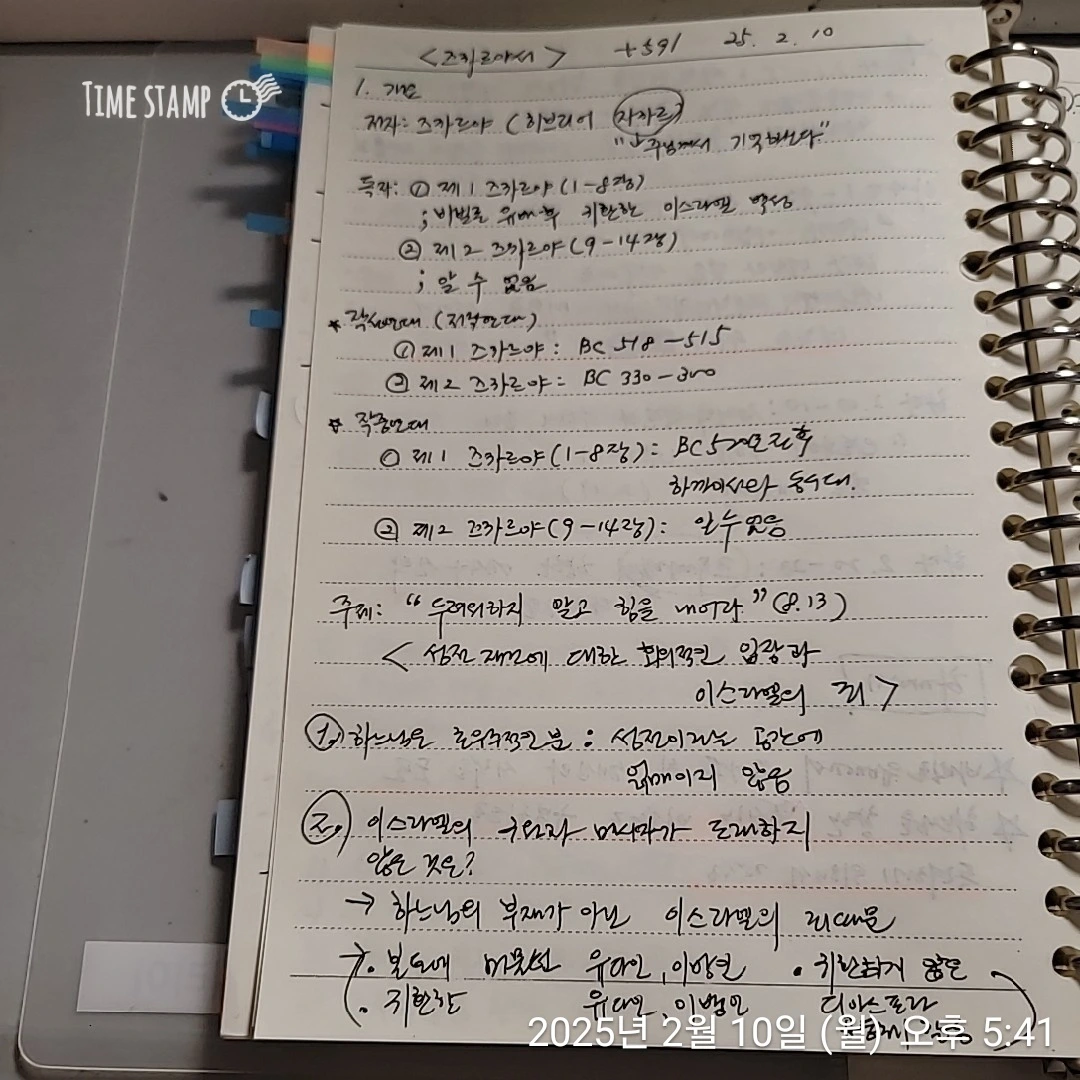 TIME STAMP
<즈카르야서> +591 25. 2. 10
1. 개요
저자: 즈카르야 (히브리어 자카르)
"주님께서 기억하신다"
독자: ① 제1 즈카르야(1-8장)
; 바빌론 유배 후 귀환한 이스라엘 백성
② 제2 즈카르야(9-14장)
; 알 수 없음
* (저작연대)
① 제1 즈카르야: BC 518-515
② 제2 즈카르야: BC 330-300
* 작중연대
① 제1 즈카르야(1-8장): BC 520년 전후
하까이서와 동시대.
② 제2 즈카르야(9-14장): 알수없음
주제: "두려워하지 말고 힘을 내어라." (8.13)
<성전 재건에 대한 회의적인 입장과
이스라엘의 죄>
1.) 하느님은 초우주적인 분: 성전이라는 공간에
얽매이지 않음
2.) 이스라엘의 구원자 메시아가 도래하지
않은 것은?
→ 하느님의 부재가 아닌 이스라엘의 죄때문
→ • 본토에 머물던 유다인, 이방인 • 귀환하지 않은
• 귀환한 유다인, 이방인 디아스포라
2025년 2월 10일 (월) 오후 5:41